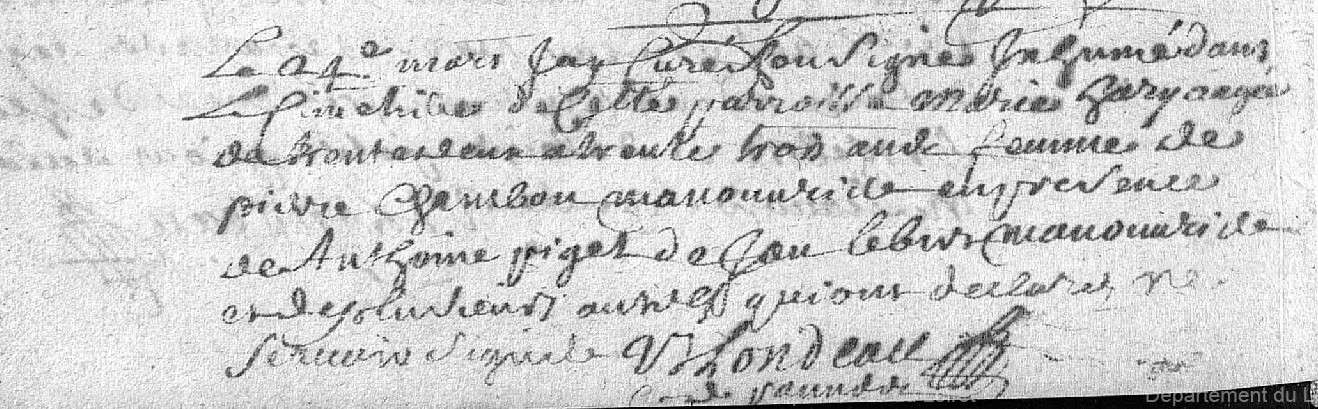 Le 24e mars Jay Curé sousigné Inhumé dans
Le Cimetiere de Cette parroisse Marie agée
de trente deux a trente trois ans femme de
pierre Chambon manouvrier en presence
de Anthoine piget de Jean manouvrier
et de plusieurs autres qui ont declarer ne
scavoir signer
Departement du L